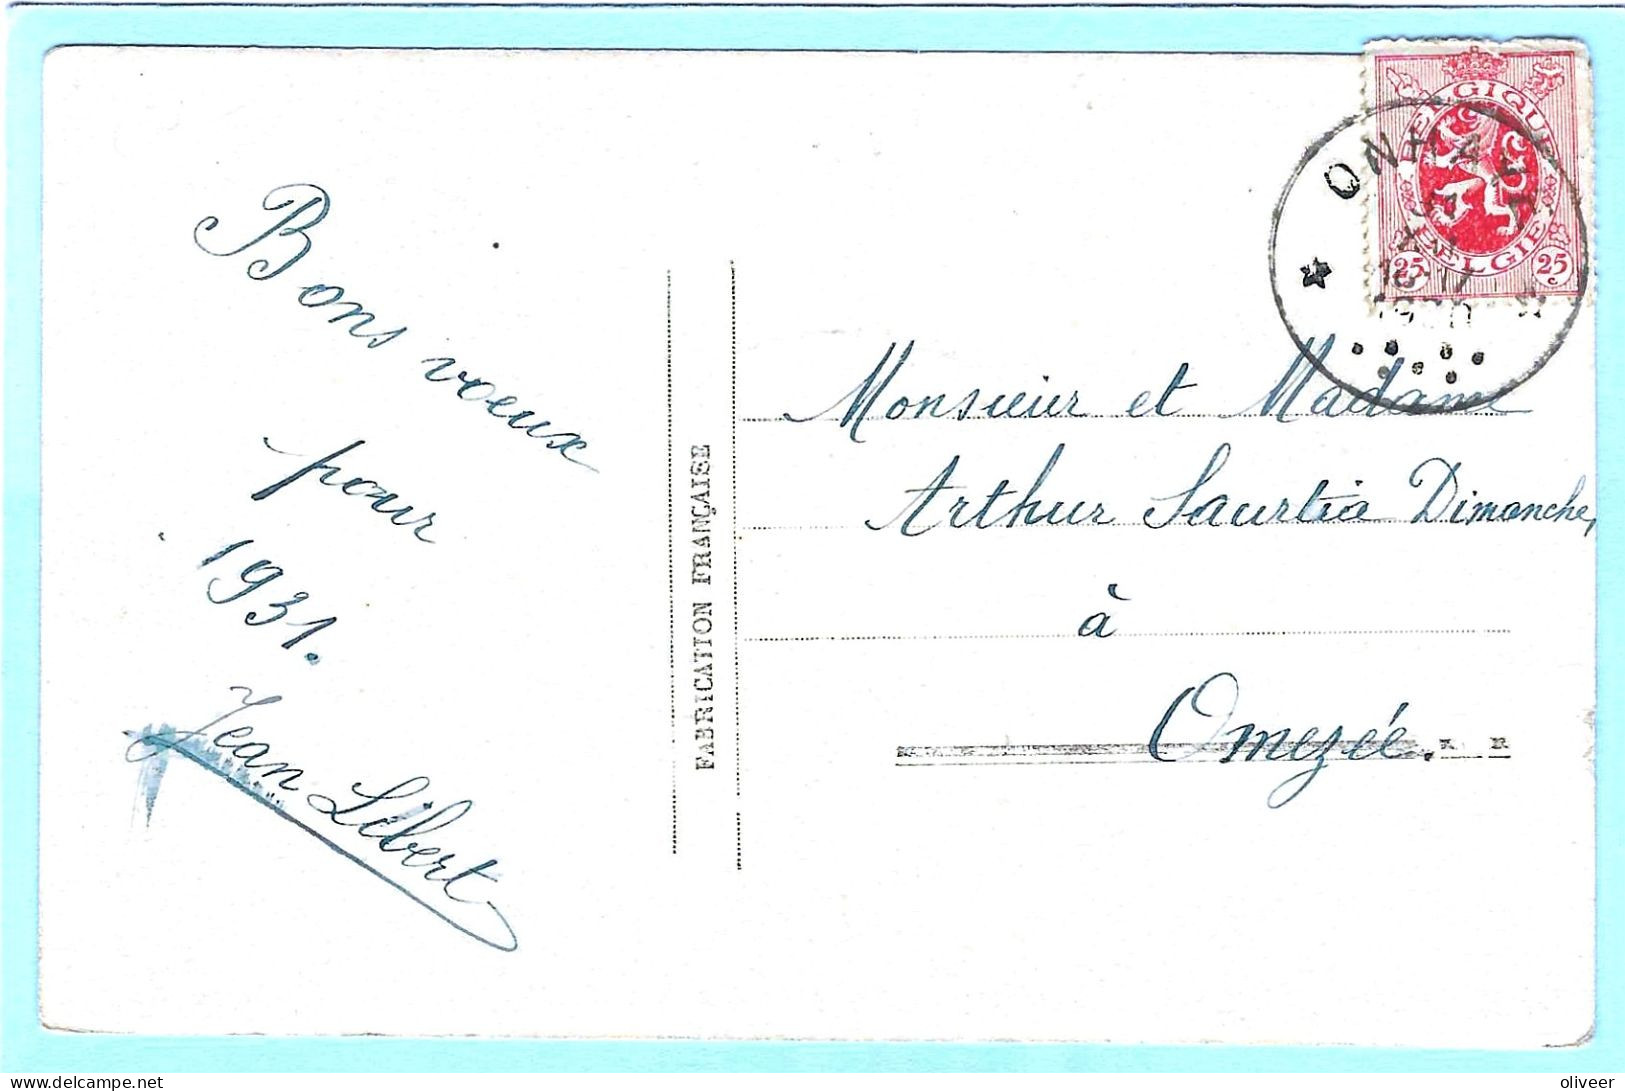 Bons voeux
pour
1931.
Jean Libert
FABRICATION FRANÇAISE
BELGIQUE
BELGIE
25 25
c
1930
Monsieur et Madame
Arthur Saurtia Dimanche,
à
Omezée.
oliveer